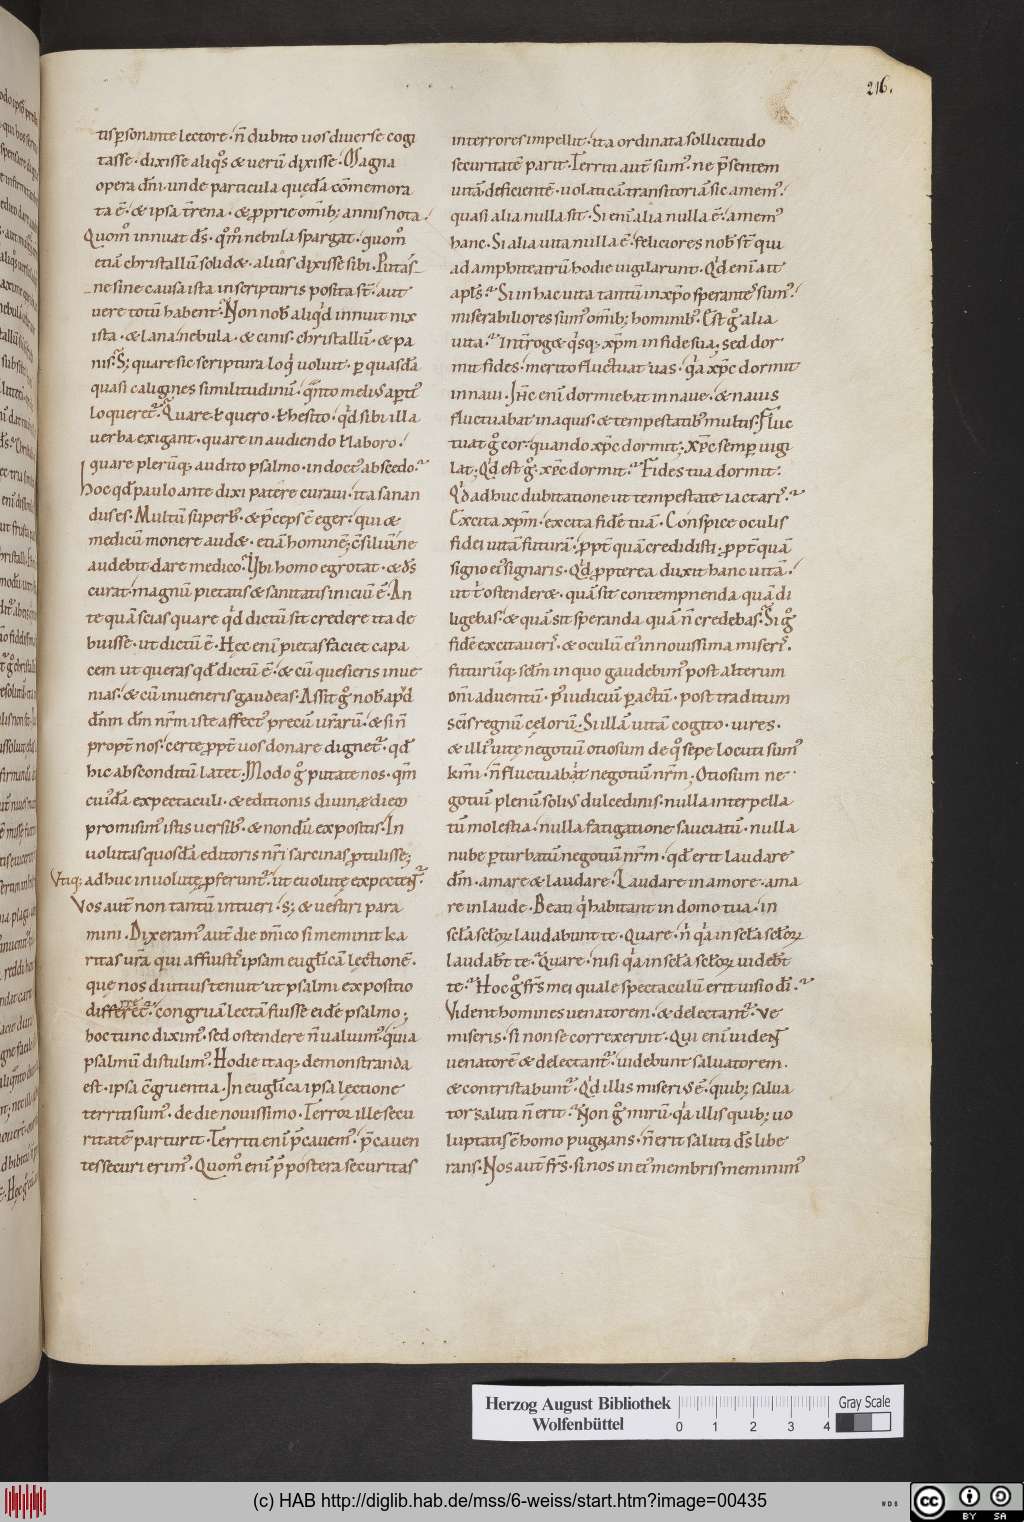 216.
tis p̄sonante lectore · n̄ dubito uos diuerse cogi
tasse · dixisse aliq̊s & uerū dixisse · Magna
opera dn̄i · unde particula quędā cōmemora
ta ē · & ipsa t̄rena · & proprie omīb; annis nota
Quom̄ innuat ds̄ · qm̄ nebula spargat · quom̄
etiā christallū solid& · alius dixisse sibi · Putas
ne sine causa ista in scripturis posita st̄ · aut
uere totū habent · Non nob̄ aliqd̄ innuit nix
ista · & lana · nebula · & cinis · christallū · & pa
nis · S; quare sic scriptura loqͥ uoluit · p̄ quasdā
quasi caligines similitudinū · qͣnto meliꝰ ap̄tꝰ
loqueret᷑ · Quare ł quero · ł hesito · qͥd sibi illa
uerba exigant · quare in audiendo ł laboro ·
quare plerūq; audito psalmo · indoctꝰ abscedo ·
hoc qd̄ paulo ante dixi patere curaui · ita sanan
dus es · Multū superbꝰ · & p̄ceps ē eger · qui &
medicū monere aud& · etiā hominē; cōsiliū ne
audebit dare medico · Ubi homo egrotat · & ds̄
curat · magnū pietatis & sanitatis iniciū ē · An
te quā scias quare qͥd dictū sit credere ita de
buisse · ut dictū ē · Hęc enī pietas faciet capa
cem ut queras qd̄ dictū ē · & cū quesieris inue
nias · & cū inueneris gaudeas · Assit g̊ nob̄ apͥd
dn̄m dm̄ nr̄m iste affectꝰ precū ur̄arū · & si n̄
propt̄ nos · certe propt̄ uos donare dignet᷑ · qd̄
hic absconditū latet · Modo g̊ putate nos · qm̄
cuiꝰdā expectaculi · & editionis diuinę a dieo
promisimꝰ istis uersibꝰ · & nondū expositis · In
uolutas quosdā editoris nr̄i sarcinas p̄tulisse;
Utiq; adhuc inuolutę proferunt᷑ · ut euolutę expectent᷑ ·
Vos aut̄ non tantū intueri · S; & uestiri para
mini · Dixeramꝰ aut̄ die dn̄ico si meminit ka
ritas ur̄a qui affuistis ipsam eugl̄icā lectionē ·
que nos diutius tenuit ut psalmi expositio
differret᷑ · congruā lectā fuisse eidē psalmo;
hoc tunc diximꝰ · sed ostendere n̄ ualuimꝰ · quia
psalmū distulimꝰ · Hodie itaq; demonstranda
est · ipsa cōgruentia · In eugl̄ica ipsa lectione
territi sumꝰ · de die nouissimo · Terror ille secu
ritatē parturit · Territi enī p̄cauemꝰ · p̄cauen
tes securi erimꝰ · Quom̄ enī p̄postera securitas
in terrores impellit · ita ordinata sollicitudo
securitatē parit · Territi aut̄ sumꝰ · ne p̄sentem
uitā deficientē · uolaticā transitoriā sic amemꝰ ·
quasi alia nulla sit · Si enī alia nulla ē · amemꝰ
hanc · Si alia uita nulla ē · feliciores nob̄ st̄ qui
ad amphiteatrū hodie uigilarunt · Qͥd enī ait
apl̄s · Si in hac uita tantū in xp̄o sperantes sumꝰ ·
miserabiliores sumꝰ omīb; hominibꝰ · Est g̊ alia
uita · Int̄roget qͥsq; xp̄m in fide sua; sed dor
mit fides · merito fluctuat uas · qͥa xp̄c dormit
in naui · Ihc̄ enī dormiebat in naue · & nauis
fluctuabat in aquis · & tempestatibꝰ multis · Fluc
tuat g̊ cor · quando xp̄c dormit; Xp̄c semper uigi
lat; Qͥd est g̊ · xp̄c dormit · Fides tua dormit ·
Qͥd adhuc dubitatione ut tempestate iactaris ·
Excita xp̄m · excita fidē tuā · Conspice oculis
fidei uitā futurā · propt̄ quā credidisti · propt̄ quā
signo eiꝰ signaris · Qͥd propterea duxit hanc uitā ·
ut tͥ ostender& · quā sit contempnenda quā di
ligebas · & quā sit speranda quā n̄ credebas · Si g̊
fidē excitaueris · & oculū eiꝰ in nouissima miseris ·
futurūq; scl̄m in quo gaudebimꝰ post alterum
dn̄i aduentū · pꝰ iudiciū p̄actū · post traditum
scīs regnū celorū · Si illā uitā cogito · uires ·
& illiꝰ uitę negotiū otiosum de qͦ sepe locuti sumꝰ
km̄i · n̄ fluctuabit negotiū nr̄m; Otiosum ne
gotiū plenū soliꝰ dulcedinis · nulla interpella
tū molestia · nulla fatigatione sauciatū · nulla
nube p̄turbatū negotiū nr̄m · qd̄ erit laudare
dm̄ · amare & laudare · Laudare in amore · ama
re in laude · Beati qͥ habitant in domo tua · in
scl̄a scl̄oꝝ laudabunt te · Quare · n̄ qͥa in scl̄a scl̄oꝝ
laudabt̄ te · Quare · nisi qͥa in scl̄a scl̄oꝝ uidebt̄
te · Hoc g̊ fr̄s mei quale spectaculū erit uisio dī ·
Vident homines uenatorem · & delectant᷑ · Ve
miseris · si non se correxerint · Qui enī uident
uenatorē & delectant᷑ · uidebunt saluatorem ·
& contristabunt᷑ · Qͥd illis miseriꝰ ē · quib; salua
tor saluti n̄ erit · Non g̊ mirū · qͥa illis quib; uo
luptati ē homo pugnans · n̄ erit saluti ds̄ libe
rans · Nos aut̄ fr̄s · si nos in eiꝰ membris meminimꝰ
Herzog August Bibliothek
Wolfenbüttel
0 1 2 3 4
Gray Scale
(c) HAB http://diglib.hab.de/mss/6-weiss/start.htm?image=00435
WDB
cc BY SA